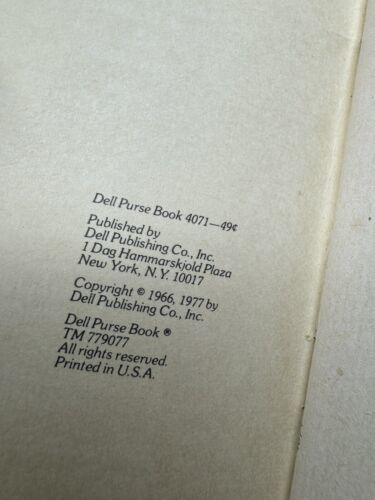 Dell Purse Book 4071—49¢
Published by
Dell Publishing Co., Inc.
1 Dag Hammarskjold Plaza
New York, N.Y. 10017
Copyright © 1966, 1977 by
Dell Publishing Co., Inc.
Dell Purse Book ®
TM 779077
All rights reserved.
Printed in U.S.A.